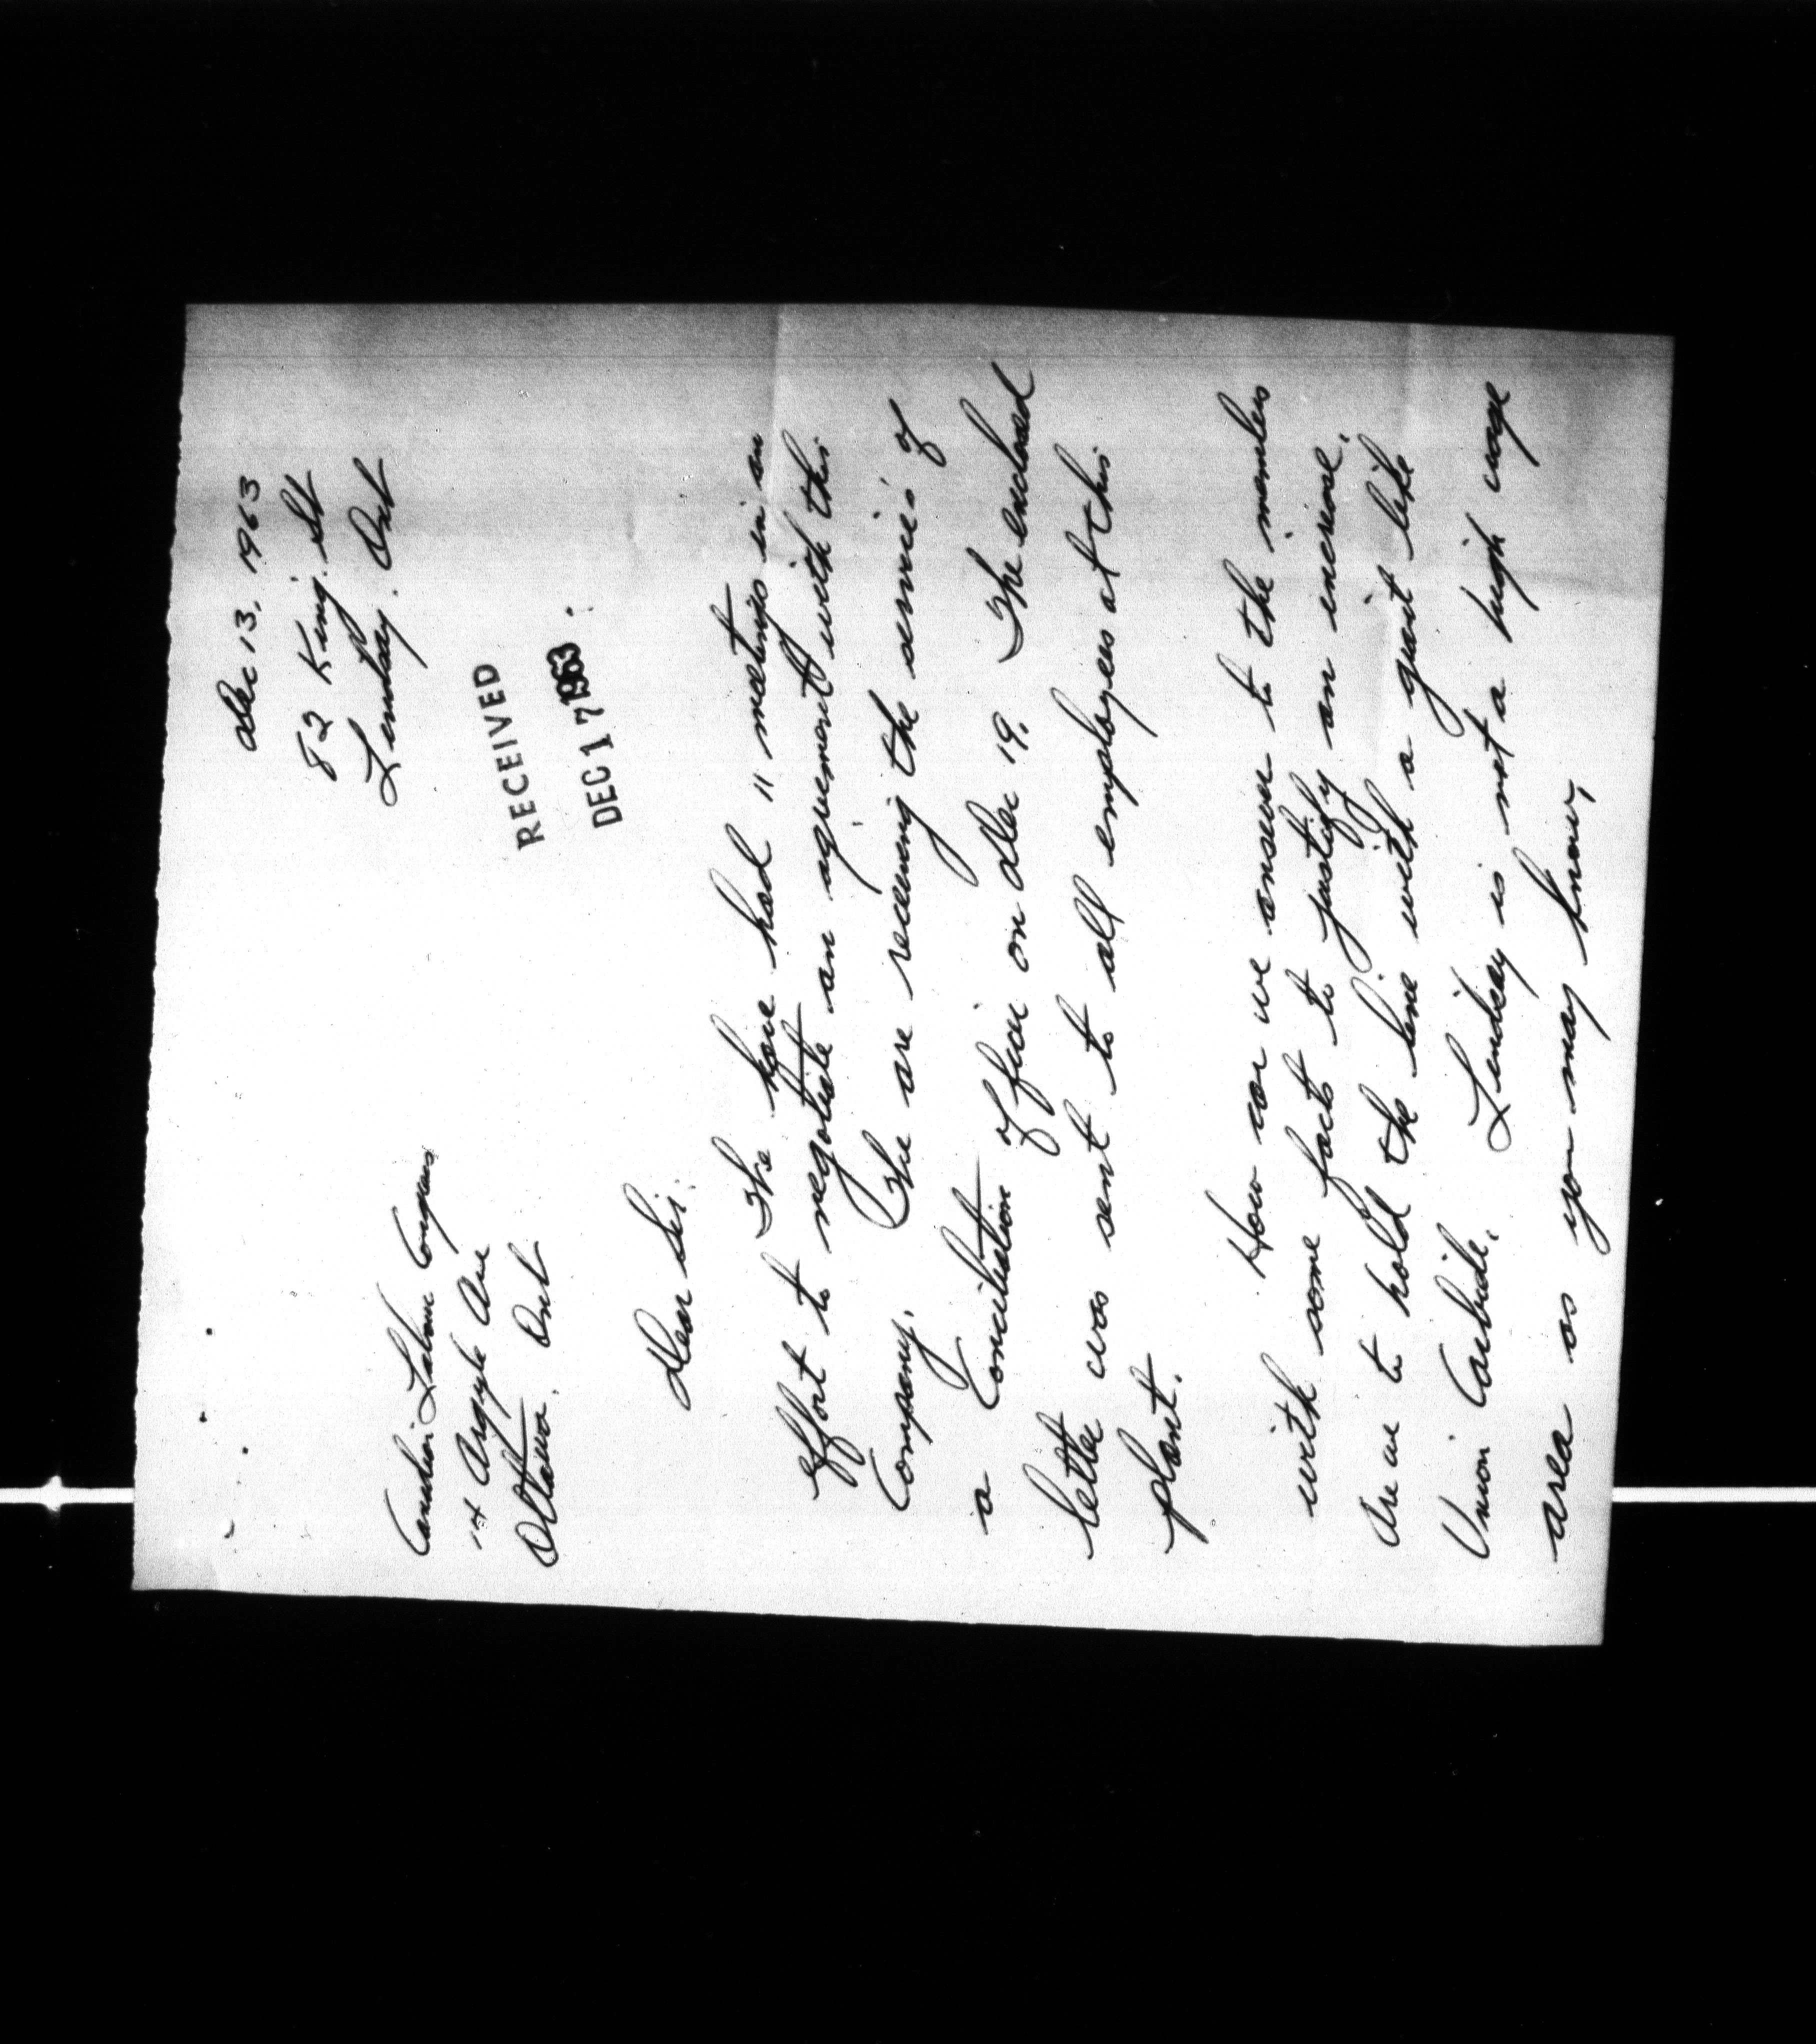 Dec 13, 1963
82 King. St
Lindsay. Ont
RECEIVED
DEC 17 1963
Canadian Labour Congress
14 Argyle Ave
Ottawa. Ont
Dear Sir:
We have had 11 meetings in an
effort to negotiate an agreement with this
Company. We are receiving the services of
a Conciliation officer on Dec 19. The enclosed
letter was sent to all employees at this
plant.
How can we answer to the members
with some facts to justify an increase.
Are we to hold the line with a giant like
Union Carbide. Lindsay is not a high wage
area as you may know,